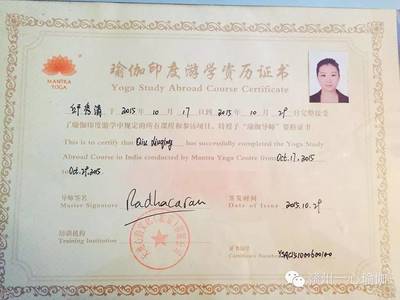 MANTRA
YOGA
瑜伽印度游学资历证书
Yoga Study Abroad Course Certificate
于 2015 年 10 月 17 日到 2015 年 10 月 29 日完整接受
了瑜伽印度游学中规定的所有课程和参访项目。特授予“瑜伽导师”资格证书
This is to certify that has successfully completed the Yoga Study
Abroad Course in India conducted by Mantra Yoga Centre from Oct.17.2015
to Oct.29.2015
导师签名
Master Signature Radhacaran
签发时间
Date of Issue 2015.10.29
培训机构
Training Institution
证书编号
Certificate Number